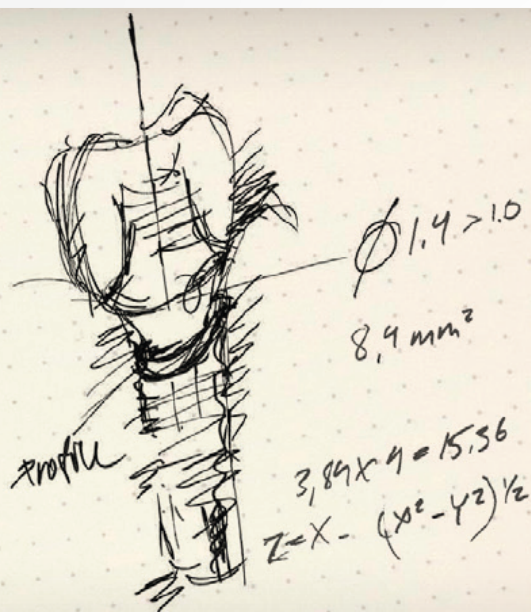 Ø 1.4 > 1.0
8,4 mm²
profile
3,84 x 4 = 15.36
z = x - (x² - y²)^½